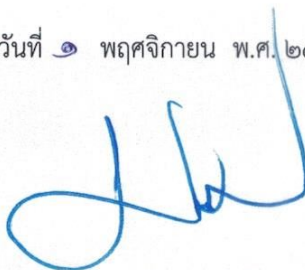 วันที่ ๑ พฤศจิกายน พ.ศ. ๒